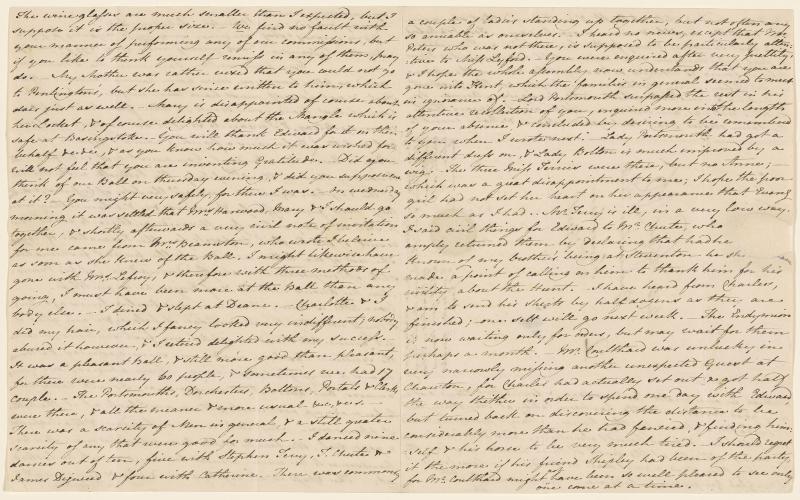 The wine glasses are much smaller than I expected, but I
suppose it is the proper size. — We find no fault with
your manner of performing any of our commissions, but
if you like to think yourself remiss in any of them, pray
do. — My Mother was rather vexed that you could not go
to Penlington's, but she has since written to him, which
does just as well. — Mary is disappointed of course about
her Locket, & of course delighted about the Mangle which is
safe at Basingstoke. — You will thank Edward for it on their
behalf &c. &c., & as you know how much it was wished for,
will not feel that you are inventing Gratitude. — Did you
think of our Ball on thursday evening, & did you suppose me
at it? — You might very safely, for there I was. — On wednesday
morning it was settled that Mrs Harwood, Mary & I should go
together, & shortly afterwards a very civil note of invitation
for me came from Mrs Bramston, who wrote I believe
as soon as she knew of the Ball. I might likewise have
gone with Mrs Lefroy, & therefore with three methods of
going, I must have been more at the Ball than any
body else. — I dined & slept at Deane. — Charlotte & I
did my hair, which I fancy looked very indifferent; nobody
abused it however, & I retired delighted with my success. —
It was a pleasant Ball, & still more good than pleasant,
for there were nearly 60 people, & sometimes we had 17
couple. — The Portsmouths, Dorchesters, Boltons, Portals & Clerks
were there, & all the meaner & more usual &c. &c.'s. —
There was a scarcity of Men in general, & a still greater
scarcity of any that were good for much. — I danced nine
dances out of ten, five with Stephen Terry, T. Chute &
James Digweed & four with Catherine. — There was commonly
a couple of ladies standing up together, but not often any
so amiable as ourselves. — I heard no news, except that Mr
Peters who was not there, is supposed to be particularly atten:
:tive to Miss Lyford. — You were enquired after very prettily,
& I hope the whole assembly now understands that you are
gone into Kent, which the families in general seemed to meet
in ignorance of. — Lord Portsmouth surpassed the rest in his
attentive recollection of you, enquired more into the length
of your absence, & concluded by desiring to be "remembered
to you when I wrote next." — Lady Portsmouth had got a
different dress on, & Lady Bolton is much improved by a
wig. — The three Miss Terries were there, but no Anne; —
which was a great disappointment to me; I hope the poor
girl had not set her heart on her appearance that Eveng
so much as I had. — Mr Terry is ill, in a very low way.
I said civil things for Edward to Mr Chute, who
amply returned them by declaring that had he
known of my brother's being at Steventon he shd
made a point of calling on him to thank him for his
civility about the Hunt. — I have heard from Charles,
& am to send his shirts by half dozens as they are
finished; — one sett will go next week. — The Endymion
is now waiting only for orders, but may wait for them
perhaps a month. — Mr Coulthard was unlucky in
very narrowly missing another unexpected Guest at
Chawton, for Charles had actually set out & got half
the way thither in order to spend one day with Edward,
but turned back on discovering the distance to be
considerably more than he had fancied, & finding him:
:self & his horse to be very much tired. — I should regret
it the more if his friend Shipley had been of the party,
for Mr Coulthard might not have been so well pleased to see only
one come at a time.